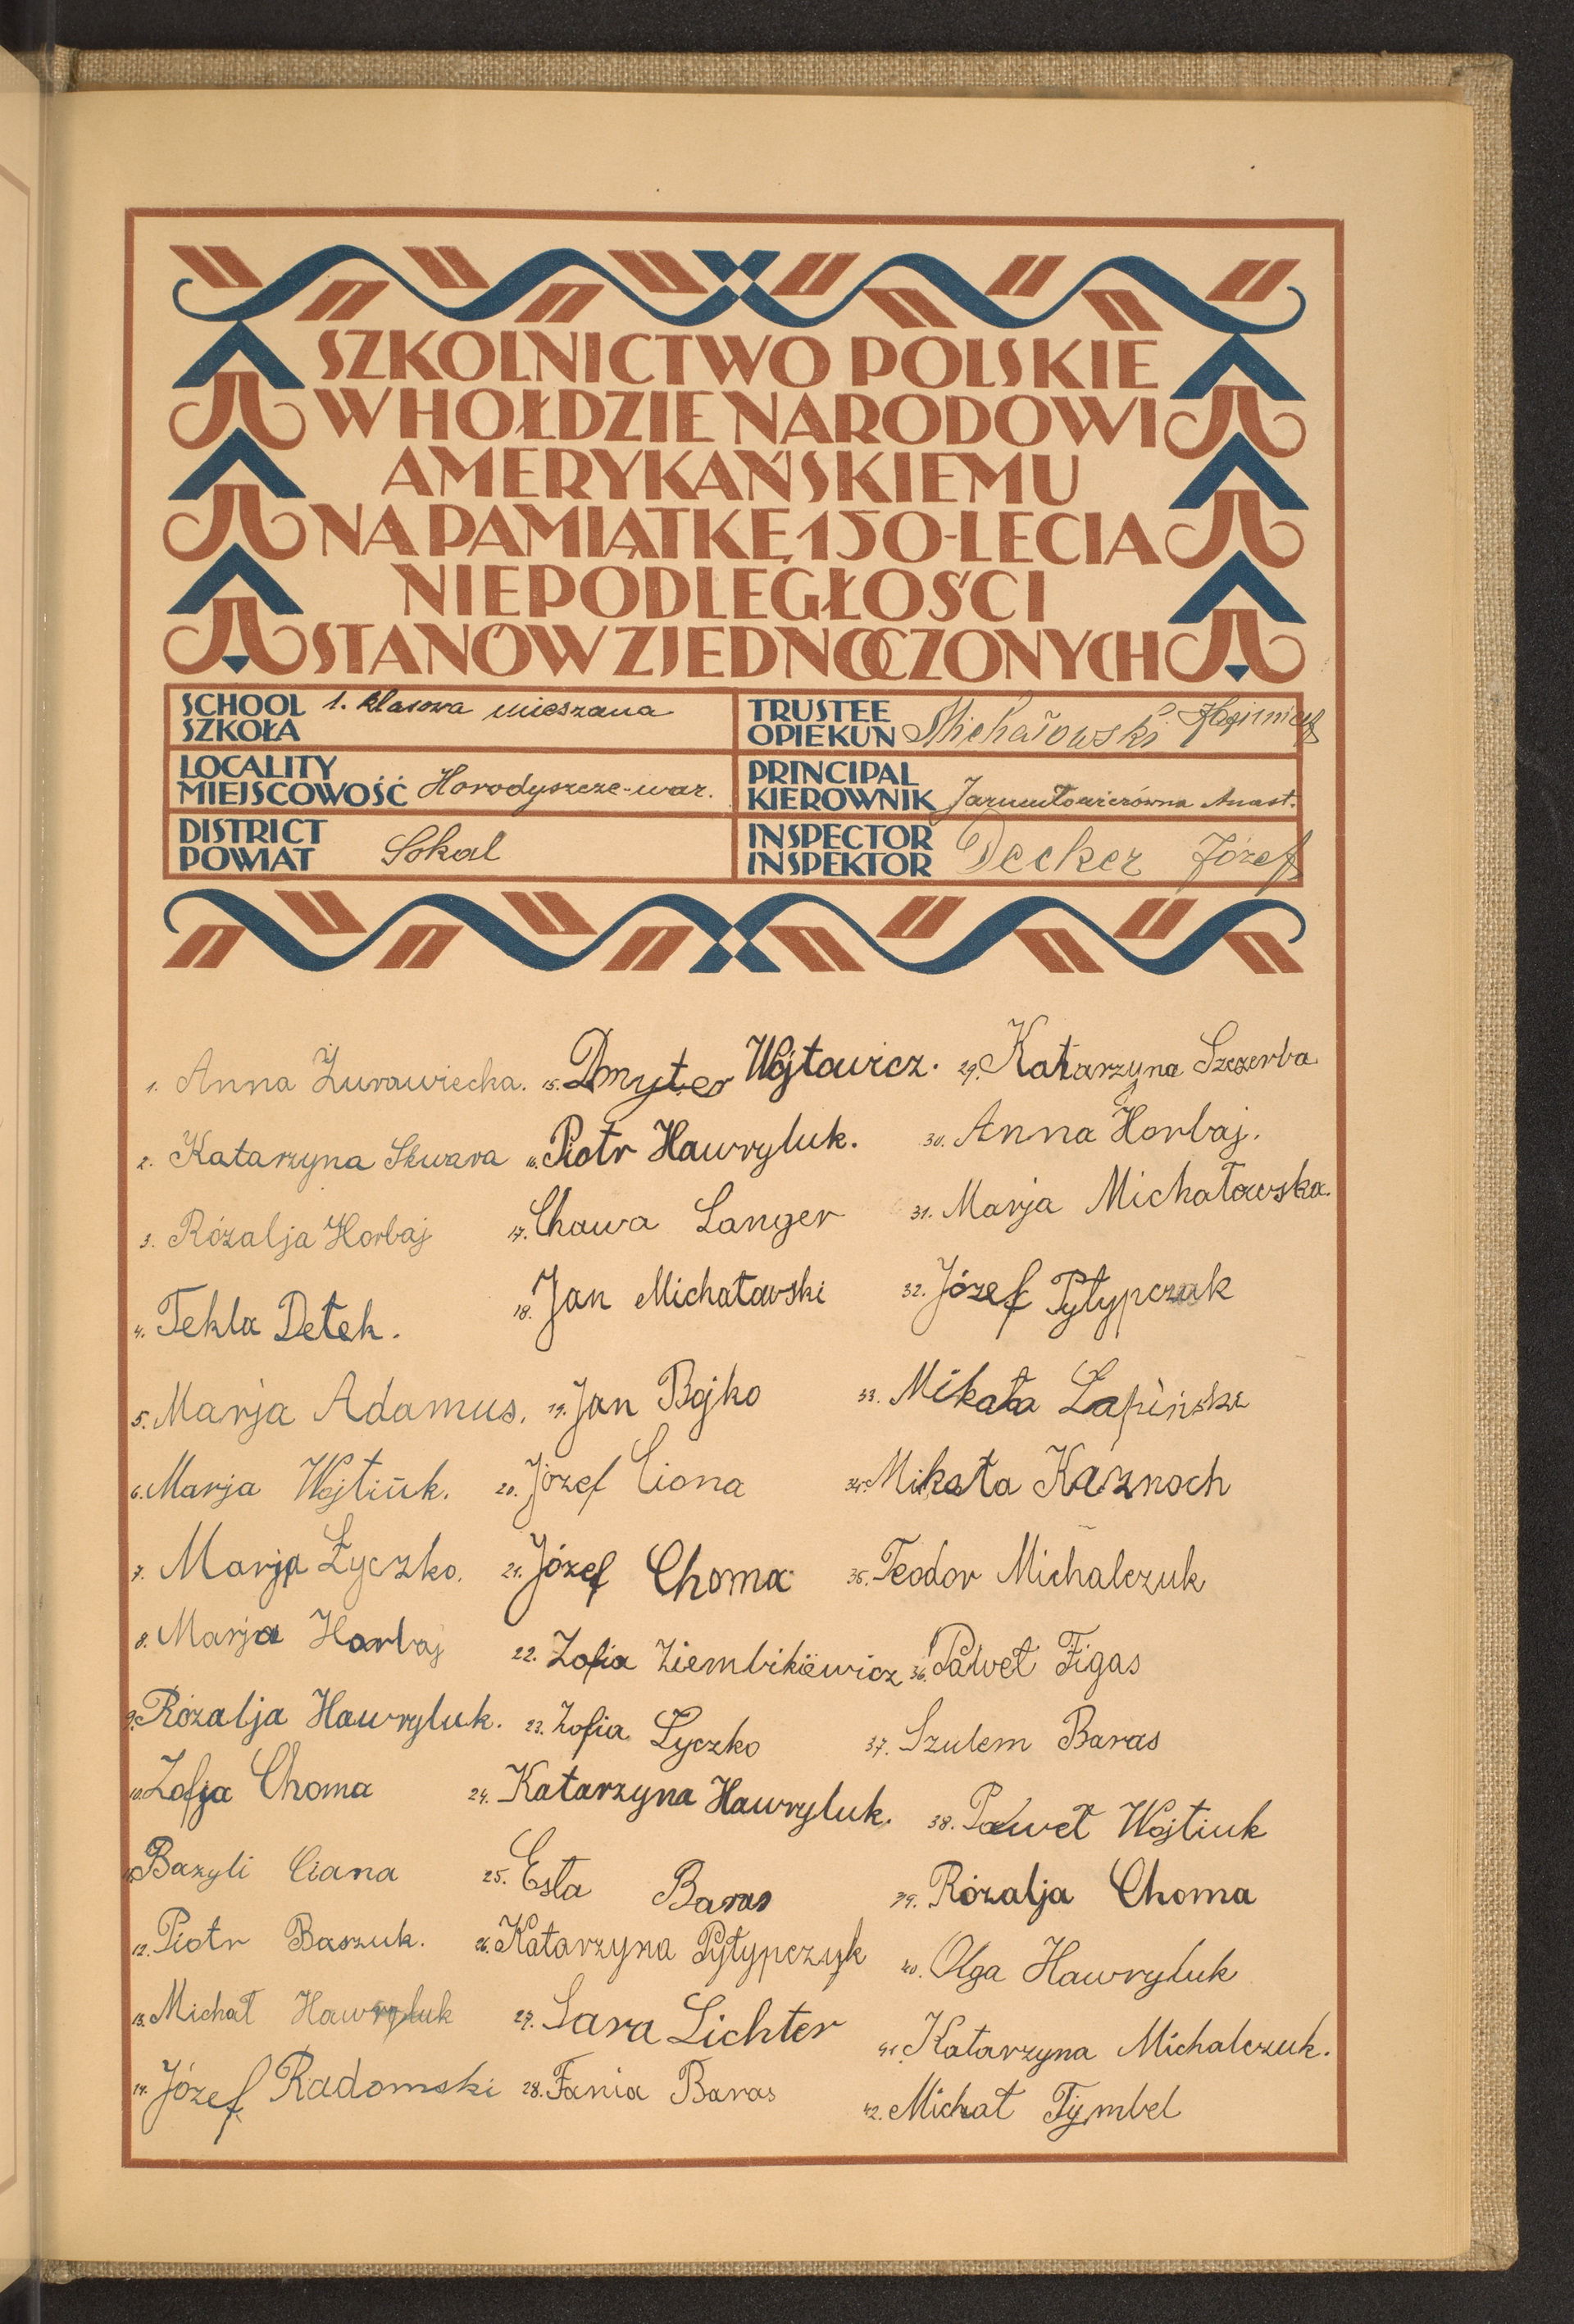 SZKOLNICTWO POLSKIE
W HOŁDZIE NARODOWI
AMERYKAŃSKIEMU
NA PAMIĄTKĘ 150-LECIA
NIEPODLEGŁOŚCI
STANÓW ZJEDNOCZONYCH
SCHOOL
SZKOŁA 1. klasowa mieszana
LOCALITY
MIEJSCOWOŚĆ Horodyszcze-war.
DISTRICT
POWIAT Sokal
TRUSTEE
OPIEKUN Michałowski Kazimierz
PRINCIPAL
KIEROWNIK Jarmutowiczówna Anast.
INSPECTOR
INSPEKTOR Decker Józef
1. Anna Żurawiecka.
2. Katarzyna Skwara
3. Rózalja Horbaj
4. Tekla Detek.
5. Marja Adamus.
6. Marja Wojtiuk.
7. Marja Łyczko.
8. Marja Horbaj
9. Rózalja Hawryluk.
10. Zofja Choma
11. Bazyli Ciana
12. Piotr Baszuk.
13. Michał Hawryluk
14. Józef Radomski
15. Dmyter Wojtowicz.
16. Piotr Hawryluk.
17. Chawa Langer
18. Jan Michałowski
19. Jan Bojko
20. Józef Ciona
21. Józef Choma
22. Zofia Ziembikiewicz
23. Zofia Łyczko
24. Katarzyna Hawryluk.
25. Esta Baras
26. Katarzyna Pyłypczyk
27. Sara Lichter
28. Fania Baras
29. Katarzyna Szczerba
30. Anna Horbaj.
31. Marja Michałowska.
32. Józef Pyłypczuk
33. Mikoła Łapiński
34. Mikoła Kaznoch
35. Teodor Michalczuk
36. Paweł Figas
37. Szulem Baras
38. Paweł Wojtiuk
39. Rózalja Choma
40. Olga Hawryluk
41. Katarzyna Michalczuk.
42. Michał Tymbel